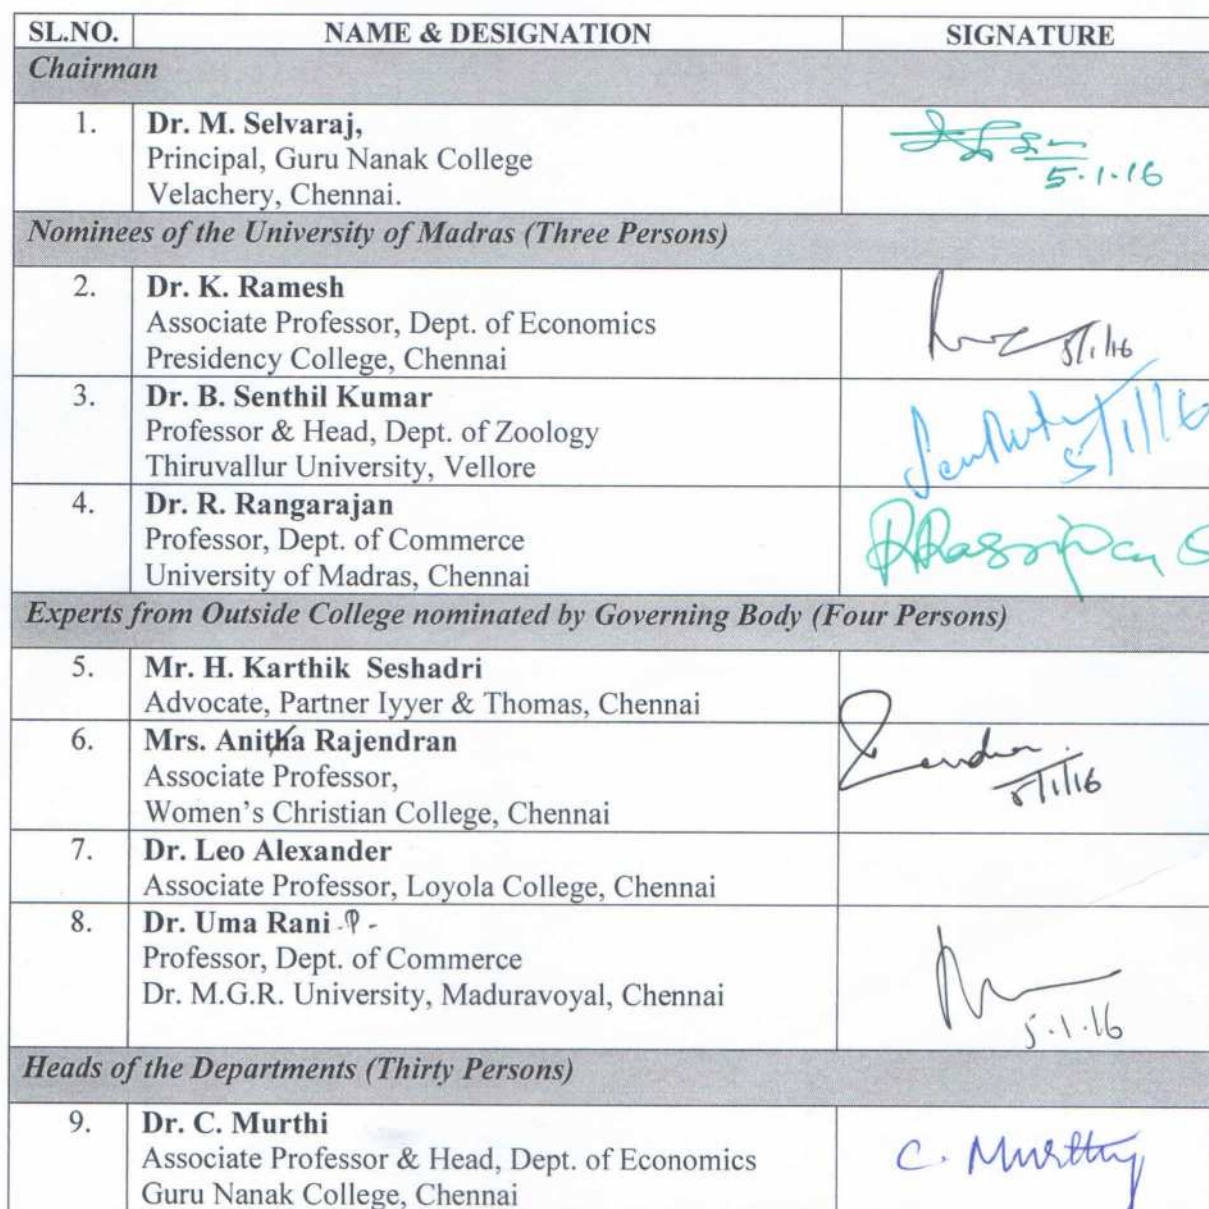 SL.NO. NAME & DESIGNATION SIGNATURE
Chairman
1. Dr. M. Selvaraj,
Principal, Guru Nanak College
Velachery, Chennai.
5.1.16
Nominees of the University of Madras (Three Persons)
2. Dr. K. Ramesh
Associate Professor, Dept. of Economics
Presidency College, Chennai
5/1/16
3. Dr. B. Senthil Kumar
Professor & Head, Dept. of Zoology
Thiruvallur University, Vellore
5/1/16
4. Dr. R. Rangarajan
Professor, Dept. of Commerce
University of Madras, Chennai
Experts from Outside College nominated by Governing Body (Four Persons)
5. Mr. H. Karthik Seshadri
Advocate, Partner Iyyer & Thomas, Chennai
6. Mrs. Anitha Rajendran
Associate Professor,
Women's Christian College, Chennai
5/1/16
7. Dr. Leo Alexander
Associate Professor, Loyola College, Chennai
8. Dr. Uma Rani
Professor, Dept. of Commerce
Dr. M.G.R. University, Maduravoyal, Chennai
5.1.16
Heads of the Departments (Thirty Persons)
9. Dr. C. Murthi
Associate Professor & Head, Dept. of Economics
Guru Nanak College, Chennai
C. Murthy